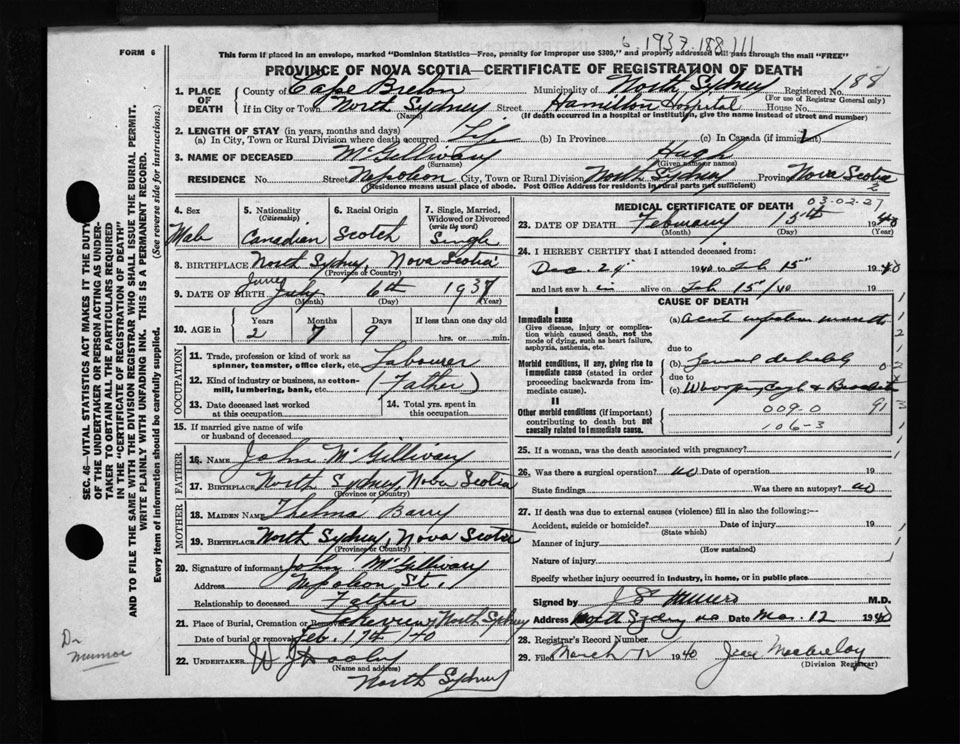 FORM 6
This form if placed in an envelope, marked "Dominion Statistics—Free, penalty for improper use $300," and properly addressed will pass through the mail "FREE"
1937 188111
PROVINCE OF NOVA SCOTIA—CERTIFICATE OF REGISTRATION OF DEATH
1. PLACE OF DEATH County of Cape Breton Municipality of North Sydney Registered No. 188
(For use of Registrar General only)
If in City or Town North Sydney Street Hamilton Hospital House No.
(Name) (If death occurred in a hospital or institution, give the name instead of street and number)
2. LENGTH OF STAY (in years, months and days)
(a) In City, Town or Rural Division where death occurred Life (b) In Province (c) In Canada (if immigrant)
3. NAME OF DECEASED McGillivary Hugh
(Surname) (Given name or names)
RESIDENCE No. Street Napoleon City, Town or Rural Division North Sydney Province Nova Scotia
(Residence means usual place of abode. Post Office Address for residents in rural parts not sufficient)
4. Sex Male
5. Nationality (Citizenship) Canadian
6. Racial Origin Scotch
7. Single, Married, Widowed or Divorced (write the word) Single
8. BIRTHPLACE North Sydney, Nova Scotia
(Province or Country)
9. DATE OF BIRTH July 6th 1937
(Month) (Day) (Year)
10. AGE in Years Months Days If less than one day old
2 7 9 hrs. or min.
OCCUPATION
11. Trade, profession or kind of work as spinner, teamster, office clerk, etc. Labourer
12. Kind of industry or business, as cotton-mill, lumbering, bank, etc. (Father)
13. Date deceased last worked at this occupation
14. Total yrs. spent in this occupation
15. If married give name of wife or husband of deceased
FATHER
16. NAME John McGillivary
17. BIRTHPLACE North Sydney, Nova Scotia
(Province or Country)
MOTHER
18. MAIDEN NAME Thelma Barry
19. BIRTHPLACE North Sydney, Nova Scotia
(Province or Country)
20. Signature of informant John McGillivary
Address Napoleon St.
Relationship to deceased Father
21. Place of Burial, Cremation or Removal Lakeview North Sydney
Date of burial or removal Feb. 17th /40
22. UNDERTAKER W J Dooley
(Name and address)
North Sydney
MEDICAL CERTIFICATE OF DEATH 03-02-27
23. DATE OF DEATH February 15th 1940
(Month) (Day) (Year)
24. I HEREBY CERTIFY that I attended deceased from:
Dec. 29" 1940 to Feb 15" 1940
and last saw h im alive on Feb 15"/40 19
CAUSE OF DEATH
I
Immediate cause
Give disease, injury or complication which caused death, not the mode of dying, such as heart failure, asphyxia, asthenia, etc.
(a)
due to
Morbid conditions, if any, giving rise to immediate cause (stated in order proceeding backwards from immediate cause).
(b) General debility
due to
(c) Whooping Cough & Bronchitis
II
Other morbid conditions (if important) contributing to death but not causally related to immediate cause.
009-0 91
106-3
25. If a woman, was the death associated with pregnancy?
26. Was there a surgical operation? no Date of operation 19
State findings Was there an autopsy? no
27. If death was due to external causes (violence) fill in also the following:—
Accident, suicide or homicide? Date of injury 19
(State which)
Manner of injury
(How sustained)
Nature of injury
Specify whether injury occurred in industry, in home, or in public place
Signed by Munro M.D.
Address North Sydney NS Date Mar. 12 1940
28. Registrar's Record Number
29. Filed March 12 1940 Jean
(Division Registrar)
SEC. 46—VITAL STATISTICS ACT MAKES IT THE DUTY OF THE UNDERTAKER OR PERSON ACTING AS UNDERTAKER TO OBTAIN ALL THE PARTICULARS REQUIRED IN THE "CERTIFICATE OF REGISTRATION OF DEATH" AND TO FILE THE SAME WITH THE DIVISION REGISTRAR WHO SHALL ISSUE THE BURIAL PERMIT.
WRITE PLAINLY WITH UNFADING INK. THIS IS A PERMANENT RECORD.
Every item of information should be carefully supplied. (See reverse side for instructions.)
Dr
Munroe